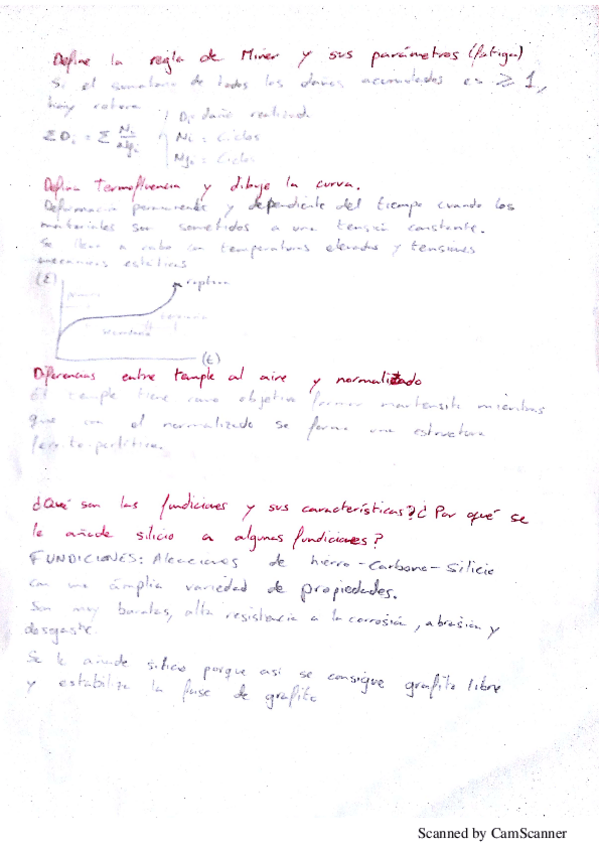 Define la regla de Miner y sus parámetros (fatiga)
Si el sumatorio de todos los daños acumulados es ≥ 1,
hay rotura
Di = daño realizado
ΣDi = Σ Ni/Nfi
Ni = Ciclos
Nfi = Ciclos
Define Termofluencia y dibuje la curva.
Deformación permanente y dependiente del tiempo cuando los
materiales son sometidos a una tensión constante.
Se lleva a cabo con temperaturas elevadas y tensiones
mecánicas estáticas
(ε)
ruptura
(t)
Diferencias entre temple al aire y normalizado
El temple tiene como objetivo formar martensita mientras
que con el normalizado se forma una estructura
ferrito-perlítica.
¿Qué son las fundiciones y sus características? ¿Por qué se
le añade silicio a algunas fundiciones?
FUNDICIONES: Aleaciones de hierro-Carbono-Silicio
con una ámplia variedad de propiedades.
Son muy baratas, alta resistencia a la corrosión, abrasión y
desgaste.
Se le añade silicio porque así se consigue grafito libre
y estabiliza la fase de grafito
Scanned by CamScanner